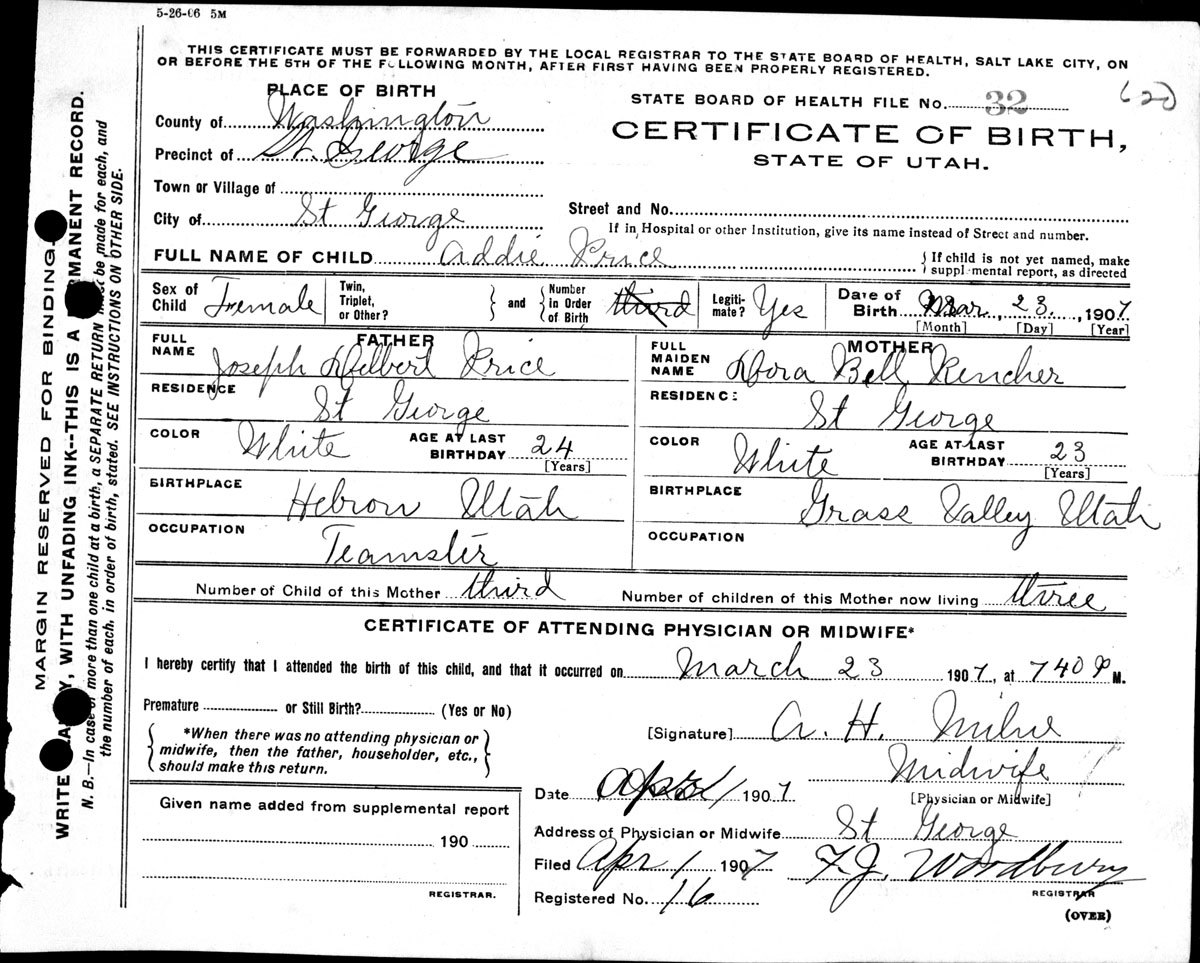 5-26-06 5M
THIS CERTIFICATE MUST BE FORWARDED BY THE LOCAL REGISTRAR TO THE STATE BOARD OF HEALTH, SALT LAKE CITY, ON
OR BEFORE THE 5TH OF THE FOLLOWING MONTH, AFTER FIRST HAVING BEEN PROPERLY REGISTERED.
PLACE OF BIRTH
County of Washington
Precinct of St. George
Town or Village of
City of St George
STATE BOARD OF HEALTH FILE No. 32
CERTIFICATE OF BIRTH,
STATE OF UTAH.
Street and No.
If in Hospital or other Institution, give its name instead of Street and number.
FULL NAME OF CHILD Addie Price
If child is not yet named, make
supplemental report, as directed
Sex of Child Female
Twin, Triplet, or Other?
and
Number in Order of Birth third
Legitimate? Yes
Date of Birth Mar. 23. 1907
[Month] [Day] [Year]
FATHER
FULL NAME Joseph Delbert Price
RESIDENCE St George
COLOR White AGE AT LAST BIRTHDAY 24
[Years]
BIRTHPLACE Hebron Utah
OCCUPATION Teamster
MOTHER
FULL MAIDEN NAME Dora Bell Rencher
RESIDENCE St George
COLOR White AGE AT LAST BIRTHDAY 23
[Years]
BIRTHPLACE Grass Valley Utah
OCCUPATION
Number of Child of this Mother third Number of children of this Mother now living three
CERTIFICATE OF ATTENDING PHYSICIAN OR MIDWIFE*
I hereby certify that I attended the birth of this child, and that it occurred on March 23 1907, at 740 P M.
Premature or Still Birth? (Yes or No)
*When there was no attending physician or
midwife, then the father, householder, etc.,
should make this return.
[Signature] A. H. Milne
Midwife
[Physician or Midwife]
Date 1907
Address of Physician or Midwife St George
Filed Apr 1 1907 F.J. Woodbury
REGISTRAR
Registered No. 16
(OVER)
Given name added from supplemental report
190
REGISTRAR.
MARGIN RESERVED FOR BINDING
WRITE , WITH UNFADING INK--THIS IS A PERMANENT RECORD.
N. B.—In case of more than one child at a birth, a SEPARATE RETURN must be made for each, and
the number of each, in order of birth, stated. SEE INSTRUCTIONS ON OTHER SIDE.